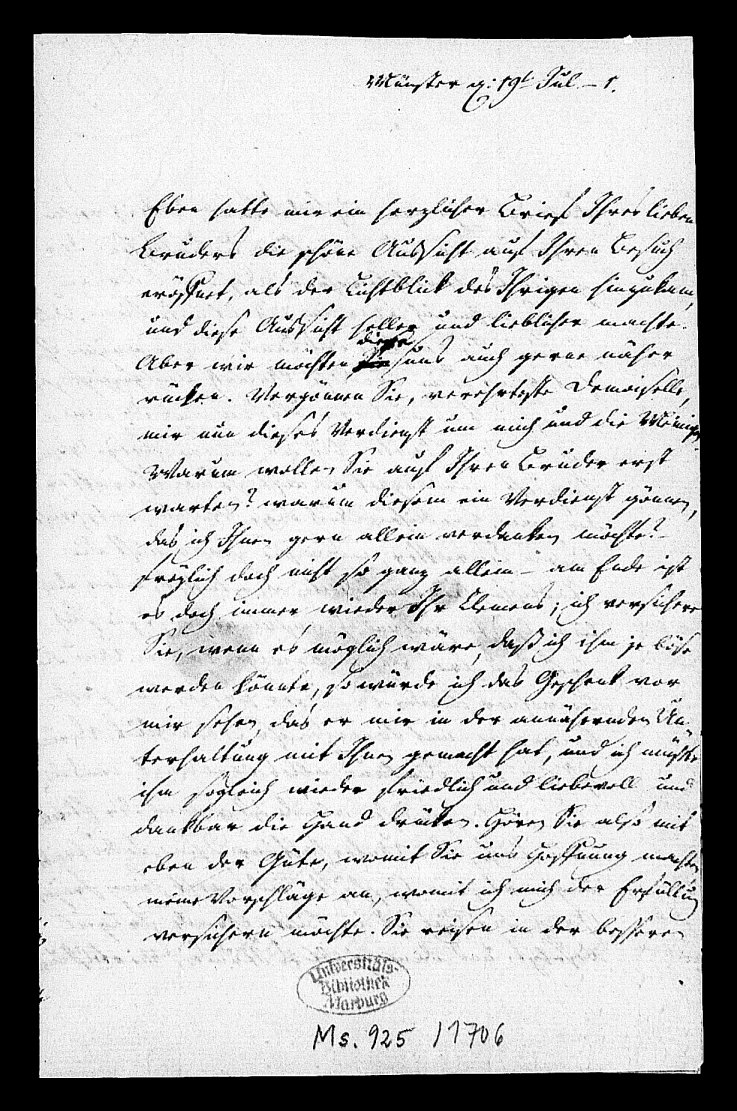 Münster d: 19t Jul. – 1.
Eben hatte mir ein herzlicher Brief Ihres lieben
Bruders die schöne Aussicht auf Ihren Besuch
eröffnet, als der Lichtblick des Ihrigen hinzukam,
und diese Aussicht heller und lieblicher machte.
diese
Aber wir möchten sie uns auch gerne näher
rücken. Vergönnen Sie, verehrteste Demoiselle,
mir nun dieses Verdienst um mich und die Meinigen.
Warum wollen Sie auf Ihren Bruder erst
warten? warum diesem ein Verdienst gönnen,
das ich Ihnen gern allein verdanken möchte? –
freylich doch nicht so ganz allein – am Ende ist
es doch immer wieder Ihr Clemens; ich versichere
Sie, wenn es möglich wäre, daß ich ihm je böse
werden könnte, so würde ich das Geschenk vor
mir sehen, das er mir in der annähernden Un
terhaltung mit Ihnen gemacht hat, und ich müßte
ihm sogleich wieder friedlich und liebevoll und
dankbar die Hand drücken. Hören Sie also mit
eben der Güte, womit Sie uns Hoffnung machten
meine Vorschläge an, womit ich mich der Erfüllung
versichern möchte. Sie reisen in der besseren
Universitäts-
Bibliothek
Marburg
Ms. 925 / 1706